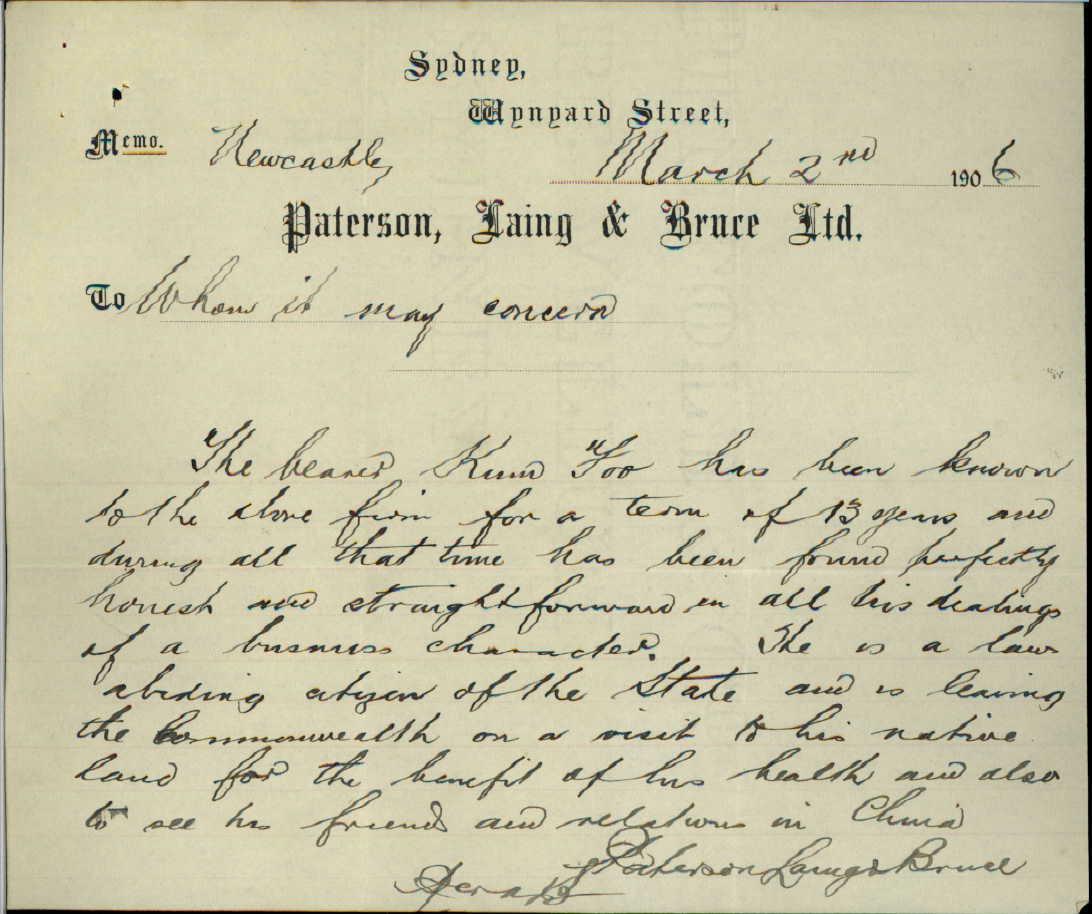 Sydney,
Wynyard Street,
Memo. Newcastle, March 2nd 1906
Paterson, Laing & Bruce Ltd.
To Whom it may concern
The bearer Kum Foo has been known
to the above firm for a term of 13 years and
during all that time has been found perfectly
honest and straightforward in all his dealings
of a business character. He is a law
abiding citizen of the State and is leaving
the Commonwealth on a visit to his native
land for the benefit of his health and also
to see his friends and relations in China
Paterson Laing & Bruce